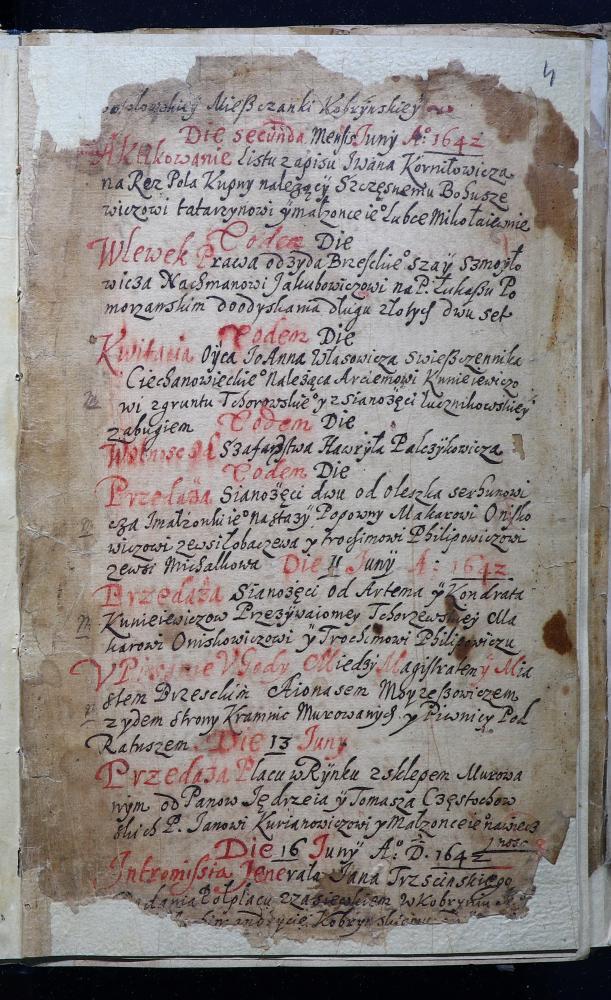 4
Mießczanki Kobrynskiey
Die secunda Mensis Juny A° 1642
Aktikowanie listu zapisu Iwana Korniłowicza
na Rez Pola Kupny należący Szczęsnemu Bohusze
wiczowi tatarzynowi ÿ małzonce ie° Lubce Mikołaiewnie
Eodem Die
Wlewek Prawa od żyda Brzeskie° Szaÿ Szmoyło
wicza Nachmanowi Jakubowiczowi na P. Łukaszu Po
morzanskim do odyskania długu złotych dwu set
Eodem Die
Kwitacia Oÿca Jo Anna Własowicza swießczennika
Ciechanowieckie° Należąca Arciemowi Kuniewiczo
wi z gruntu Tchorowskie° y z sianożęci łucznikowskiey
zabugiem Eodem Die
Wolnosc Szafarstwa Hawryła Palczykowicza
Eodem Die
Przedaża Sianożęci dwu od Oleszka Serhunowi
cza ÿ małżonki ie° Nastazÿ Popowny Makarowi Onisko
wiczowi ze wsi Łobaczewa y Trochimowi Philipowiczowi
ze wsi Michalkowa Die 11 Junÿ A: 1642
Przedaża Sianożęci od Artema ÿ Kondrata
Kuniewiczow Przezywaiomey Tchorzewskiey Ma
karowi Oniskowiczowi ÿ Trochimowi Philipowiczu
Ugody Miedzy Magistratem ÿ Mia
stem Brzeskim A Jonasem Moyzeßowiczem
zydem strony Kramnic Murowanych y Piwnicy Pod
Ratuszem Die 13 Juny
Przedaża Placu w Rynku z sklepem Murowa
nym od Panow Jędrzeia ÿ Tomasza Częstochow
skich P. Janowi Kurianowiczowi y Małzonce ie° na wiecz
nosc
Die 16 Junÿ A° D. 1642
Intromissia Jenerała Jana Trzscinskiego
Połplacu z zasiewkiem w Kobryniu
Kobrynskiemu